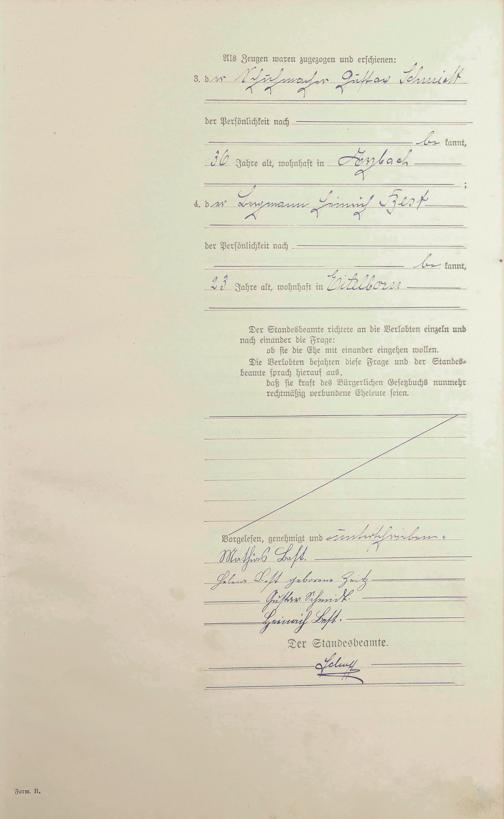 Als Zeugen waren zugezogen und erschienen:
3. der Schuhmacher Gustav Schmidt
der Persönlichkeit nach
bekannt,
36 Jahre alt, wohnhaft in Arzbach
;
4. der Bergmann Heinrich Best
der Persönlichkeit nach
bekannt,
23 Jahre alt, wohnhaft in Eitelborn
Der Standesbeamte richtete an die Verlobten einzeln und
nach einander die Frage:
ob sie die Ehe mit einander eingehen wollen.
Die Verlobten bejahten diese Frage und der Standes-
beamte sprach hierauf aus,
daß sie kraft des Bürgerlichen Gesetzbuchs nunmehr
rechtmäßig verbundene Eheleute seien.
Vorgelesen, genehmigt und unterschrieben.
Mathias Best.
Helene Best geborene
Gustav Schmidt.
Heinrich Best.
Der Standesbeamte.
Form. B.